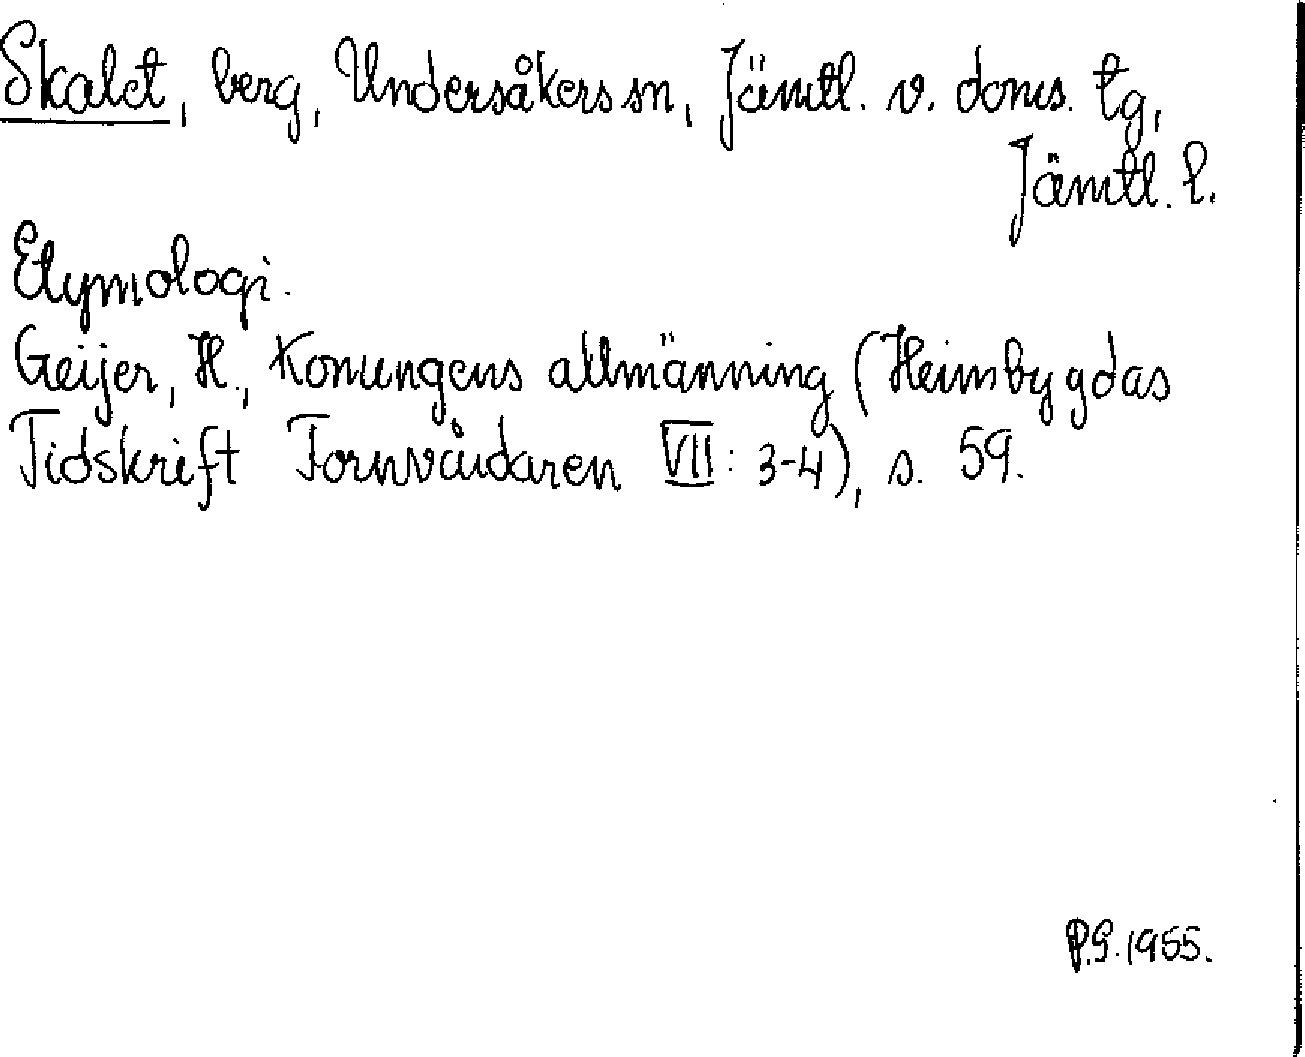 Skalet, berg, Undersåkers sn, Jämtl. v. doms. tg,
Jämtl. l.
Etymologi.
Geijer, H., Konungens allmänning (Heimbygdas
Tidskrift Fornvårdaren VII: 3-4), s. 59.
P.G. 1955.